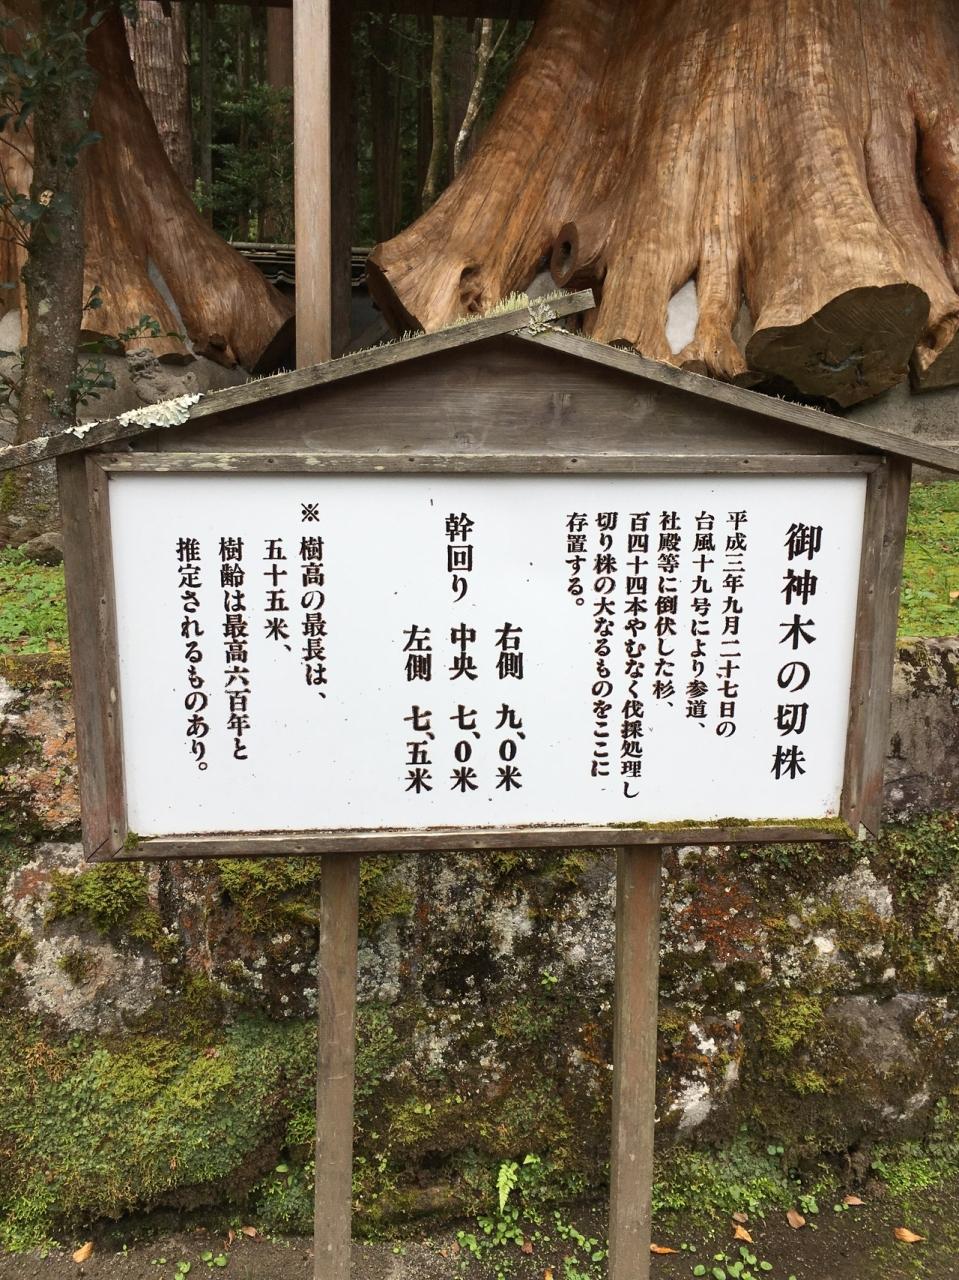 御神木の切株
平成三年九月二十七日の
台風十九号により参道、
社殿等に倒伏した杉、
百四十四本やむなく伐採処理し
切り株の大なるものをここに
存置する。
右側 九、0米
幹回り 中央 七、0米
左側 七、五米
※樹高の最長は、
五十五米、
樹齢は最高六百年と
推定されるものあり。